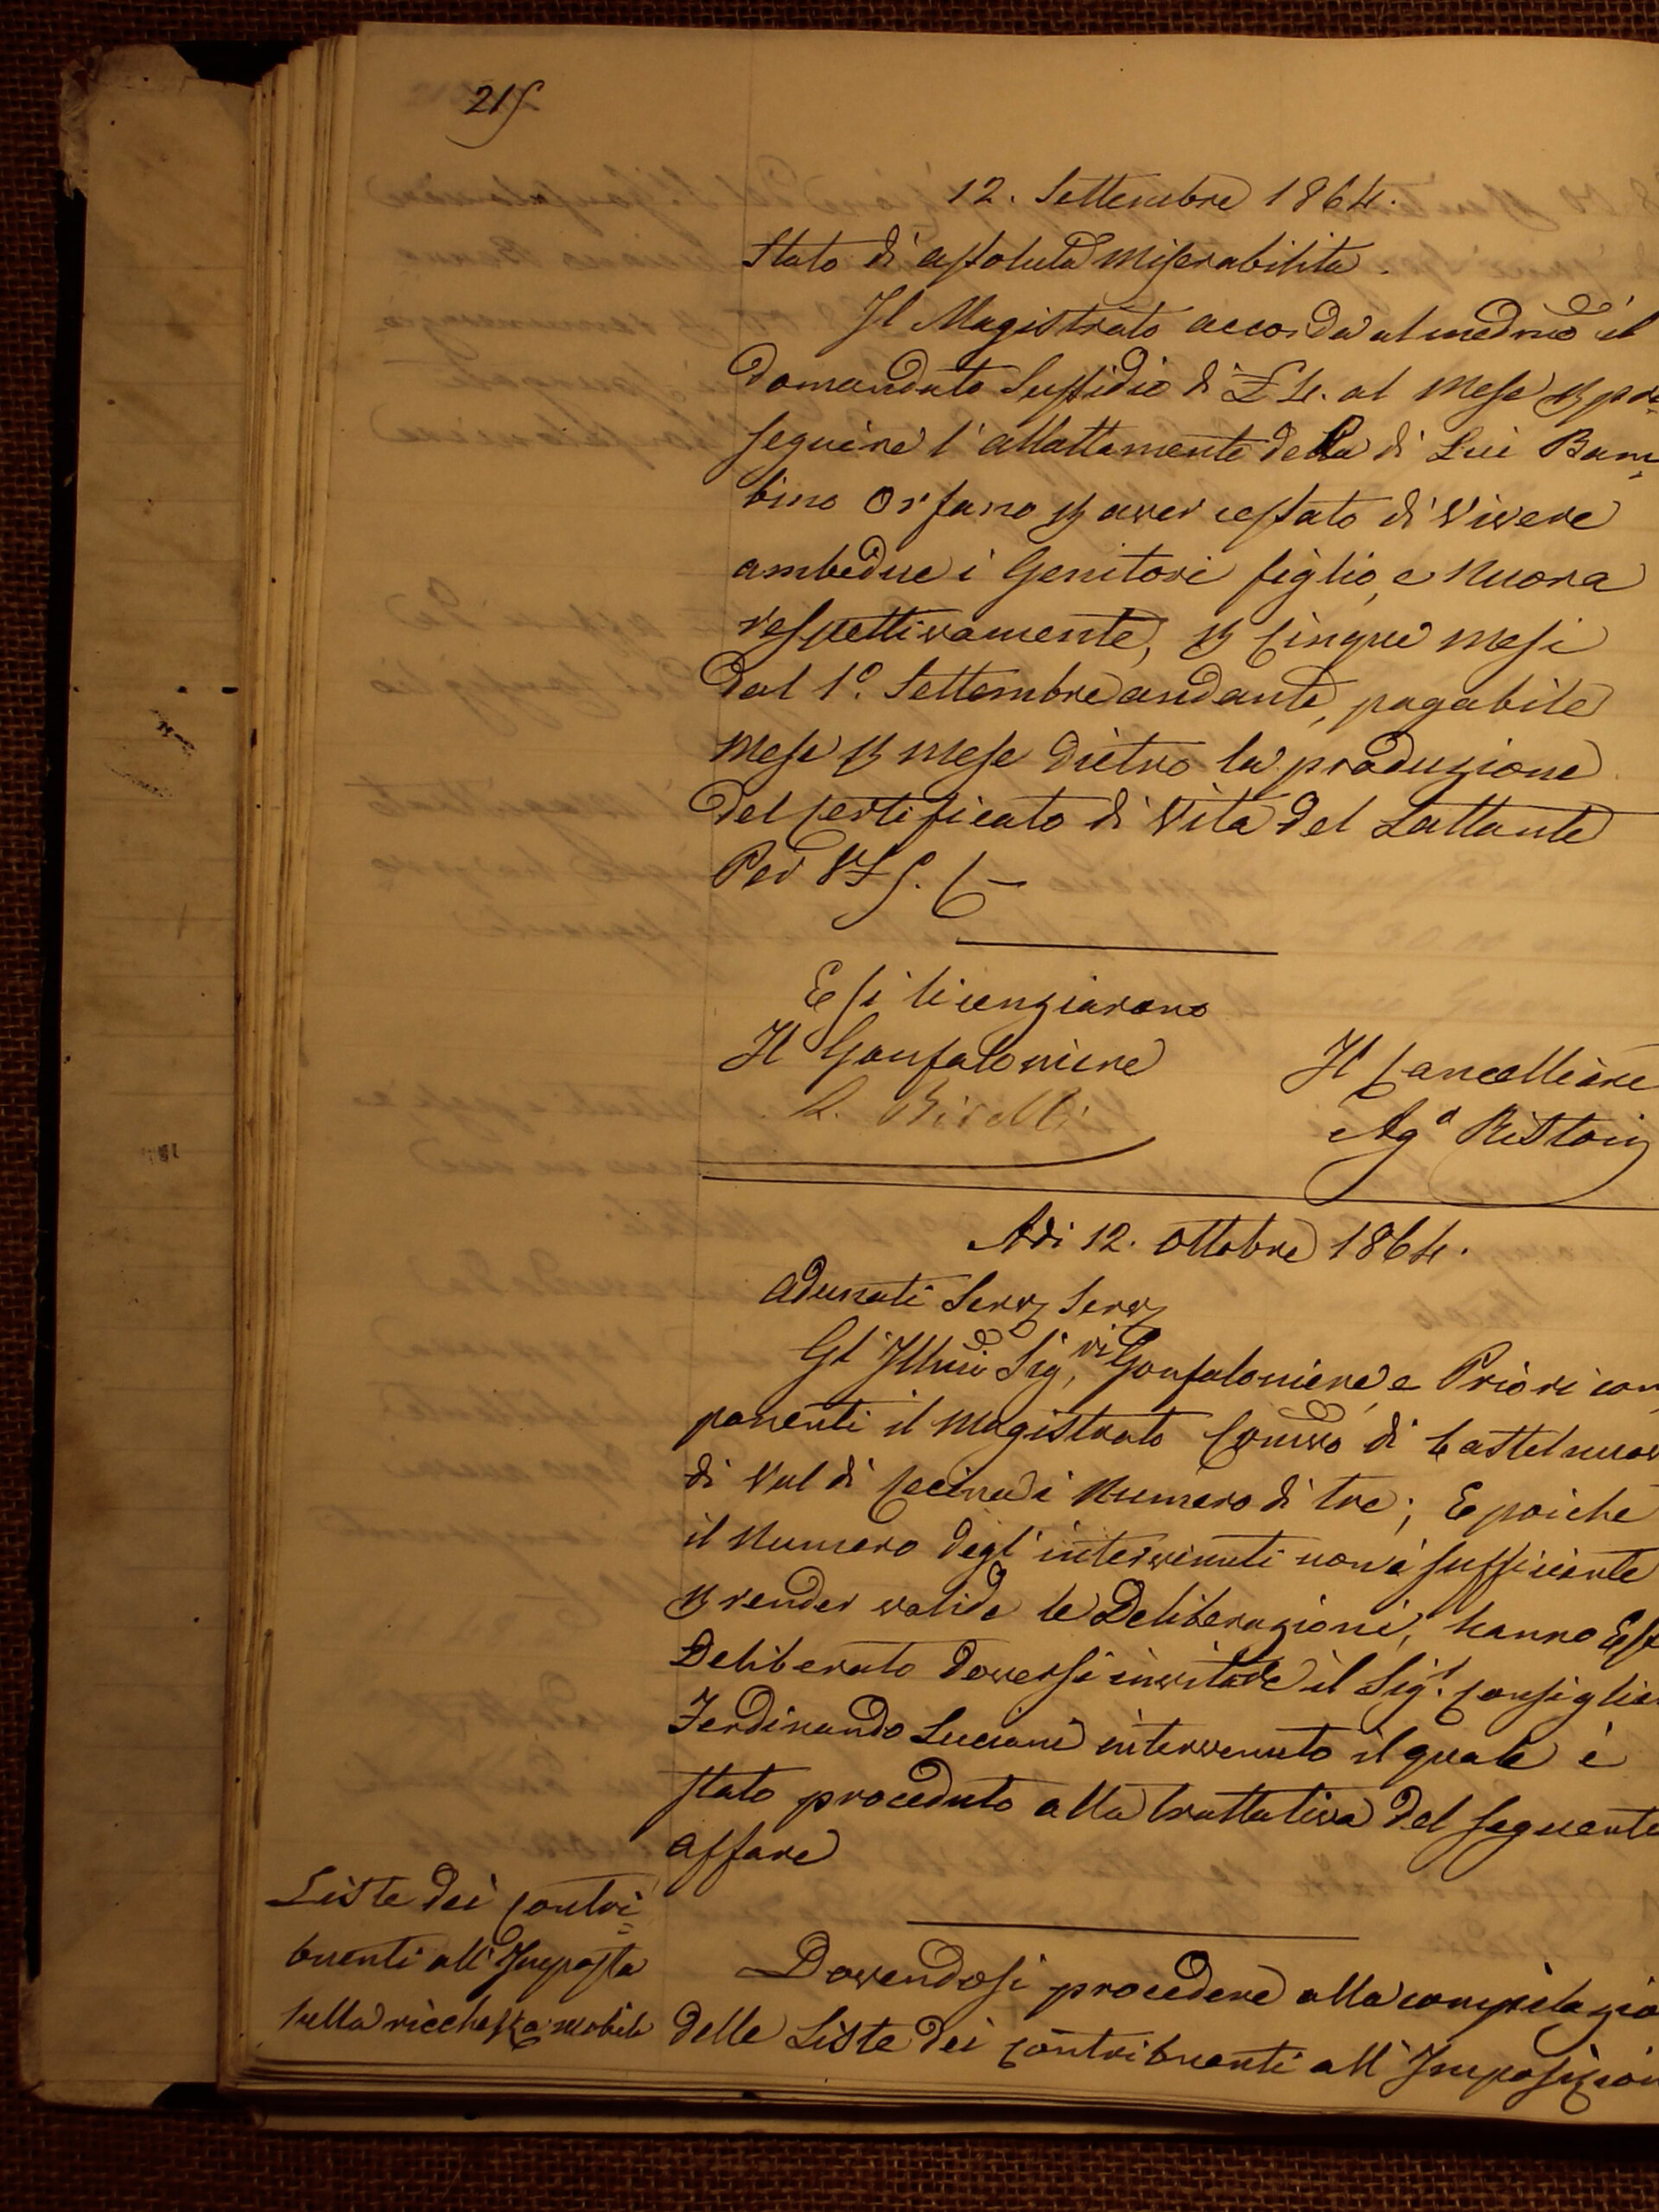 215
12. Settembre 1864.
Stato di assoluta miserabilita.
Il Magistrato accorda al medmo il
domandato Sussidio di £ 4. al Mese p pro=
seguire l'allattamento della di Lui Bam=
bino Orfano p aver cessato di vivere
ambedue i Genitori figlio, e Nuora
respettivamente, p Cinque mesi
dal 1o. Settembre andante, pagabile
Mese p mese dietro la produzione
del Certificato di Vita del Lattante
Per
E si licenziarono
Il Gonfaloniere
Il Cancelliere
Ago Ristori
Adi 12. Ottobre 1864.
Adunati Serv Serv
Gl'Illmi Sigri Gonfaloniere e Priori com
ponenti il Magistrato Comvo di Castelnuov
di Val di Cecina i Numero di tre; E poiche
il Numero degl'intervenuti non è sufficiente
p render valide le Deliberazioni, hanno Ess
Deliberato doversi invitare il Sigr. Consiglie
Ferdinando Luciani intervenuto il quale è
stato proceduto alla trattativa del seguente
affare
Liste dei Contri=
buenti all'Imposta
sulla ricchezza mobile
Dovendosi procedere alla compilazio
delle Liste dei Contribuenti all'Imposizion